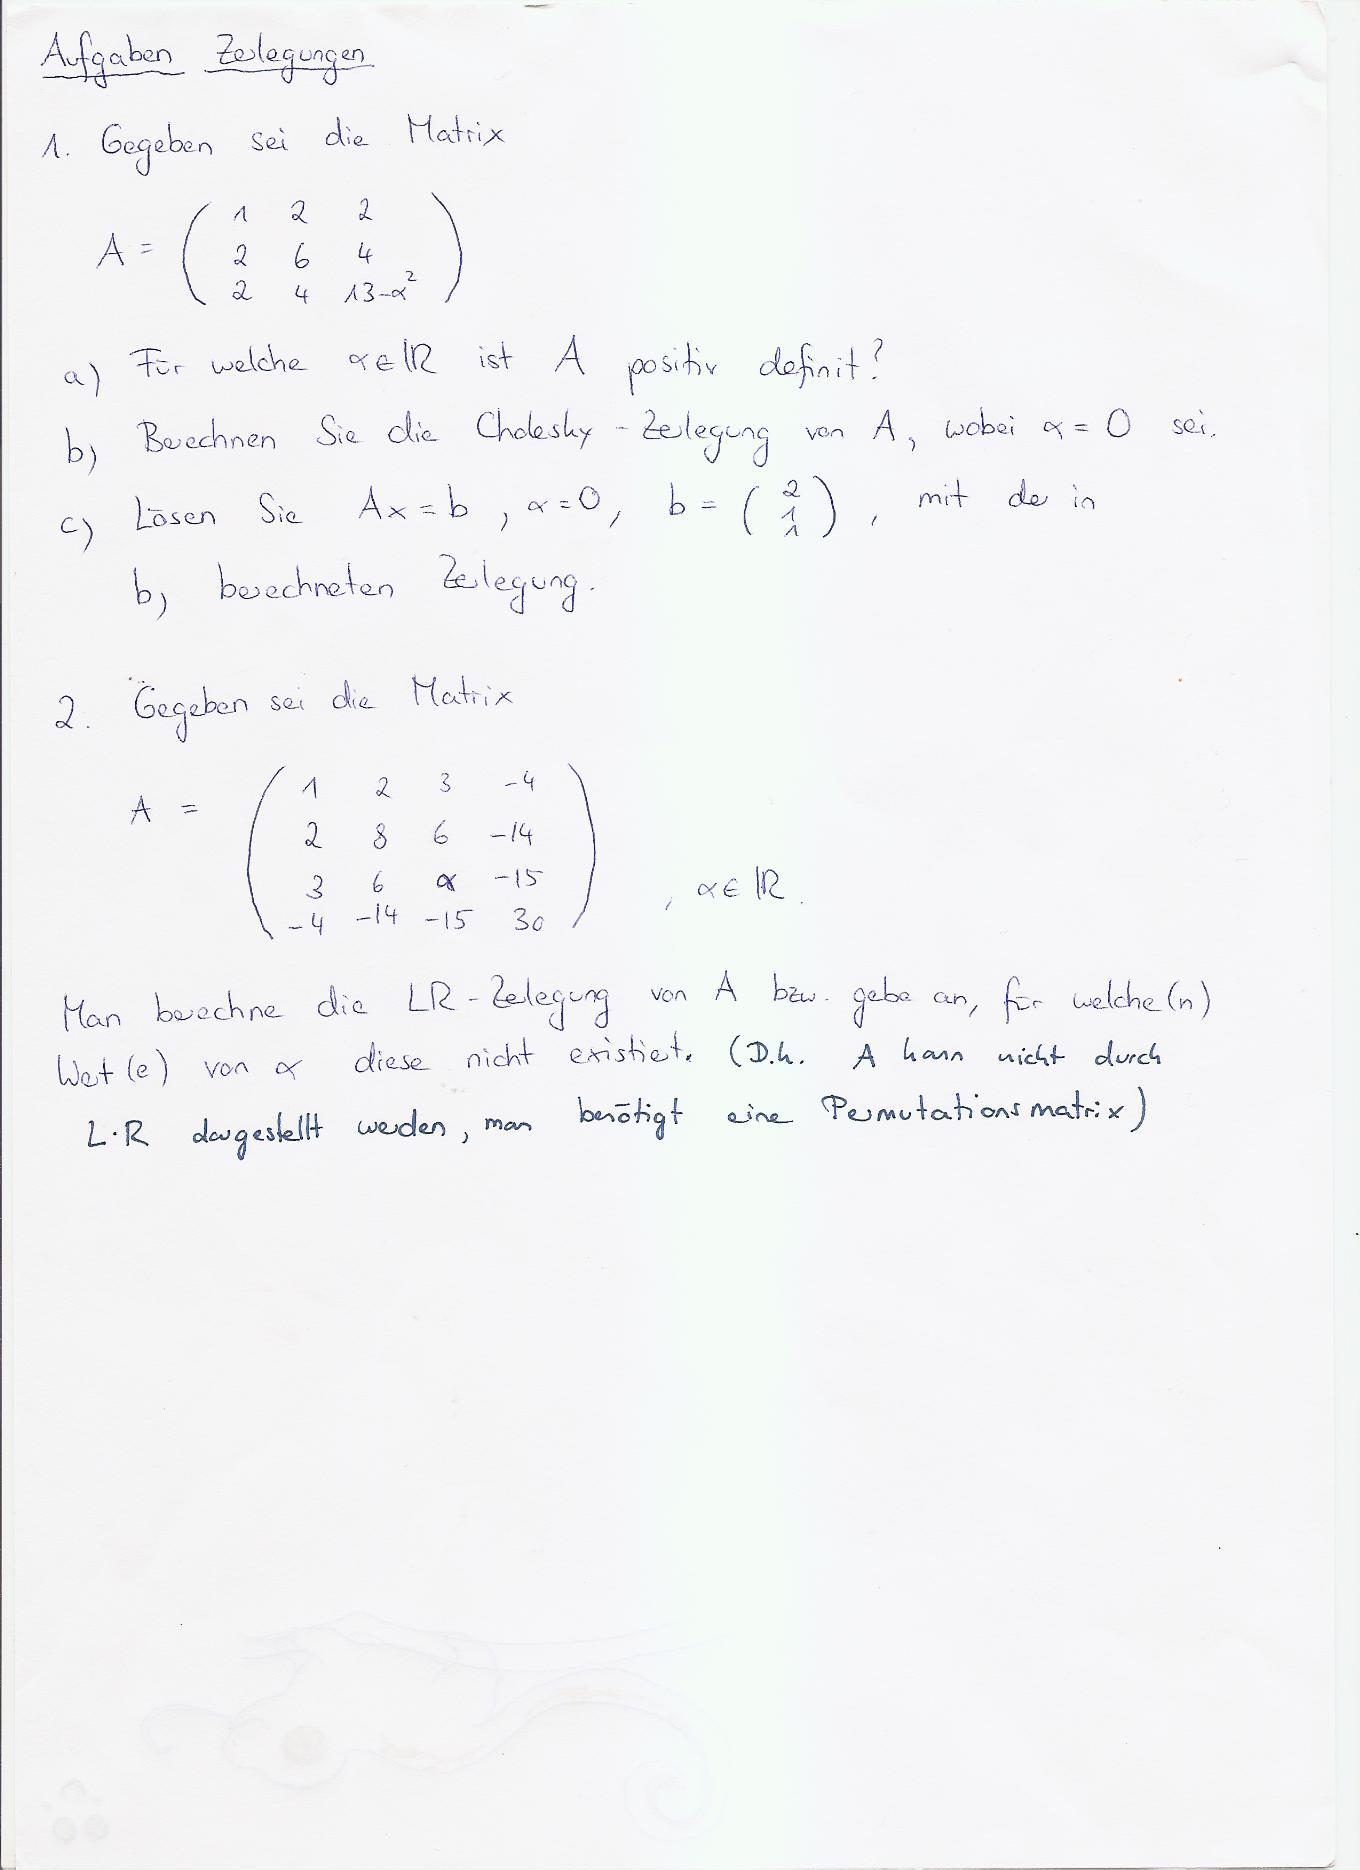 Aufgaben Zerlegungen
1. Gegeben sei die Matrix
A = ( 1 2 2
2 6 4
2 4 13-α² )
a) Für welche α∈ℝ ist A positiv definit?
b) Berechnen Sie die Cholesky-Zerlegung von A, wobei α = 0 sei.
c) Lösen Sie Ax = b, α = 0, b = ( 2 1 1 ), mit der in
b) berechneten Zerlegung.
2. Gegeben sei die Matrix
A = ( 1 2 3 -4
2 8 6 -14
3 6 α -15
-4 -14 -15 30 ), α∈ℝ.
Man berechne die LR-Zerlegung von A bzw. gebe an, für welche(n)
Wert(e) von α diese nicht existiert. (D.h. A kann nicht durch
L·R dargestellt werden, man benötigt eine Permutationsmatrix)